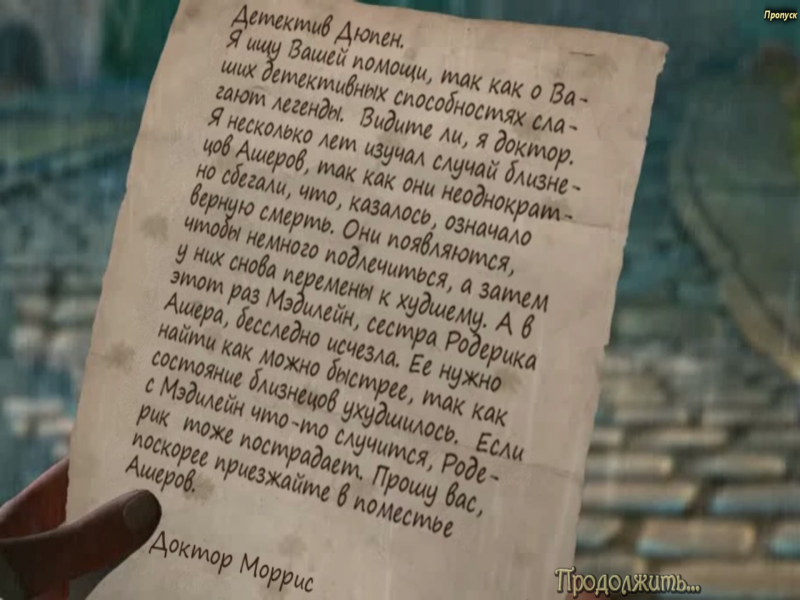 Пропуск
Детектив Дюпен.
Я ищу Вашей помощи, так как о Ва-
ших детективных способностях сла-
гают легенды. Видите ли, я доктор.
Я несколько лет изучал случай близне-
цов Ашеров, так как они неоднократ-
но сбегали, что, казалось, означало
верную смерть. Они появляются,
чтобы немного подлечиться, а затем
у них снова перемены к худшему. А в
этот раз Мэдилейн, сестра Родерика
Ашера, бесследно исчезла. Ее нужно
найти как можно быстрее, так как
состояние близнецов ухудшилось. Если
с Мэдилейн что-то случится, Роде-
рик тоже пострадает. Прошу вас,
поскорее приезжайте в поместье
Ашеров.
Доктор Моррис
Продолжить...